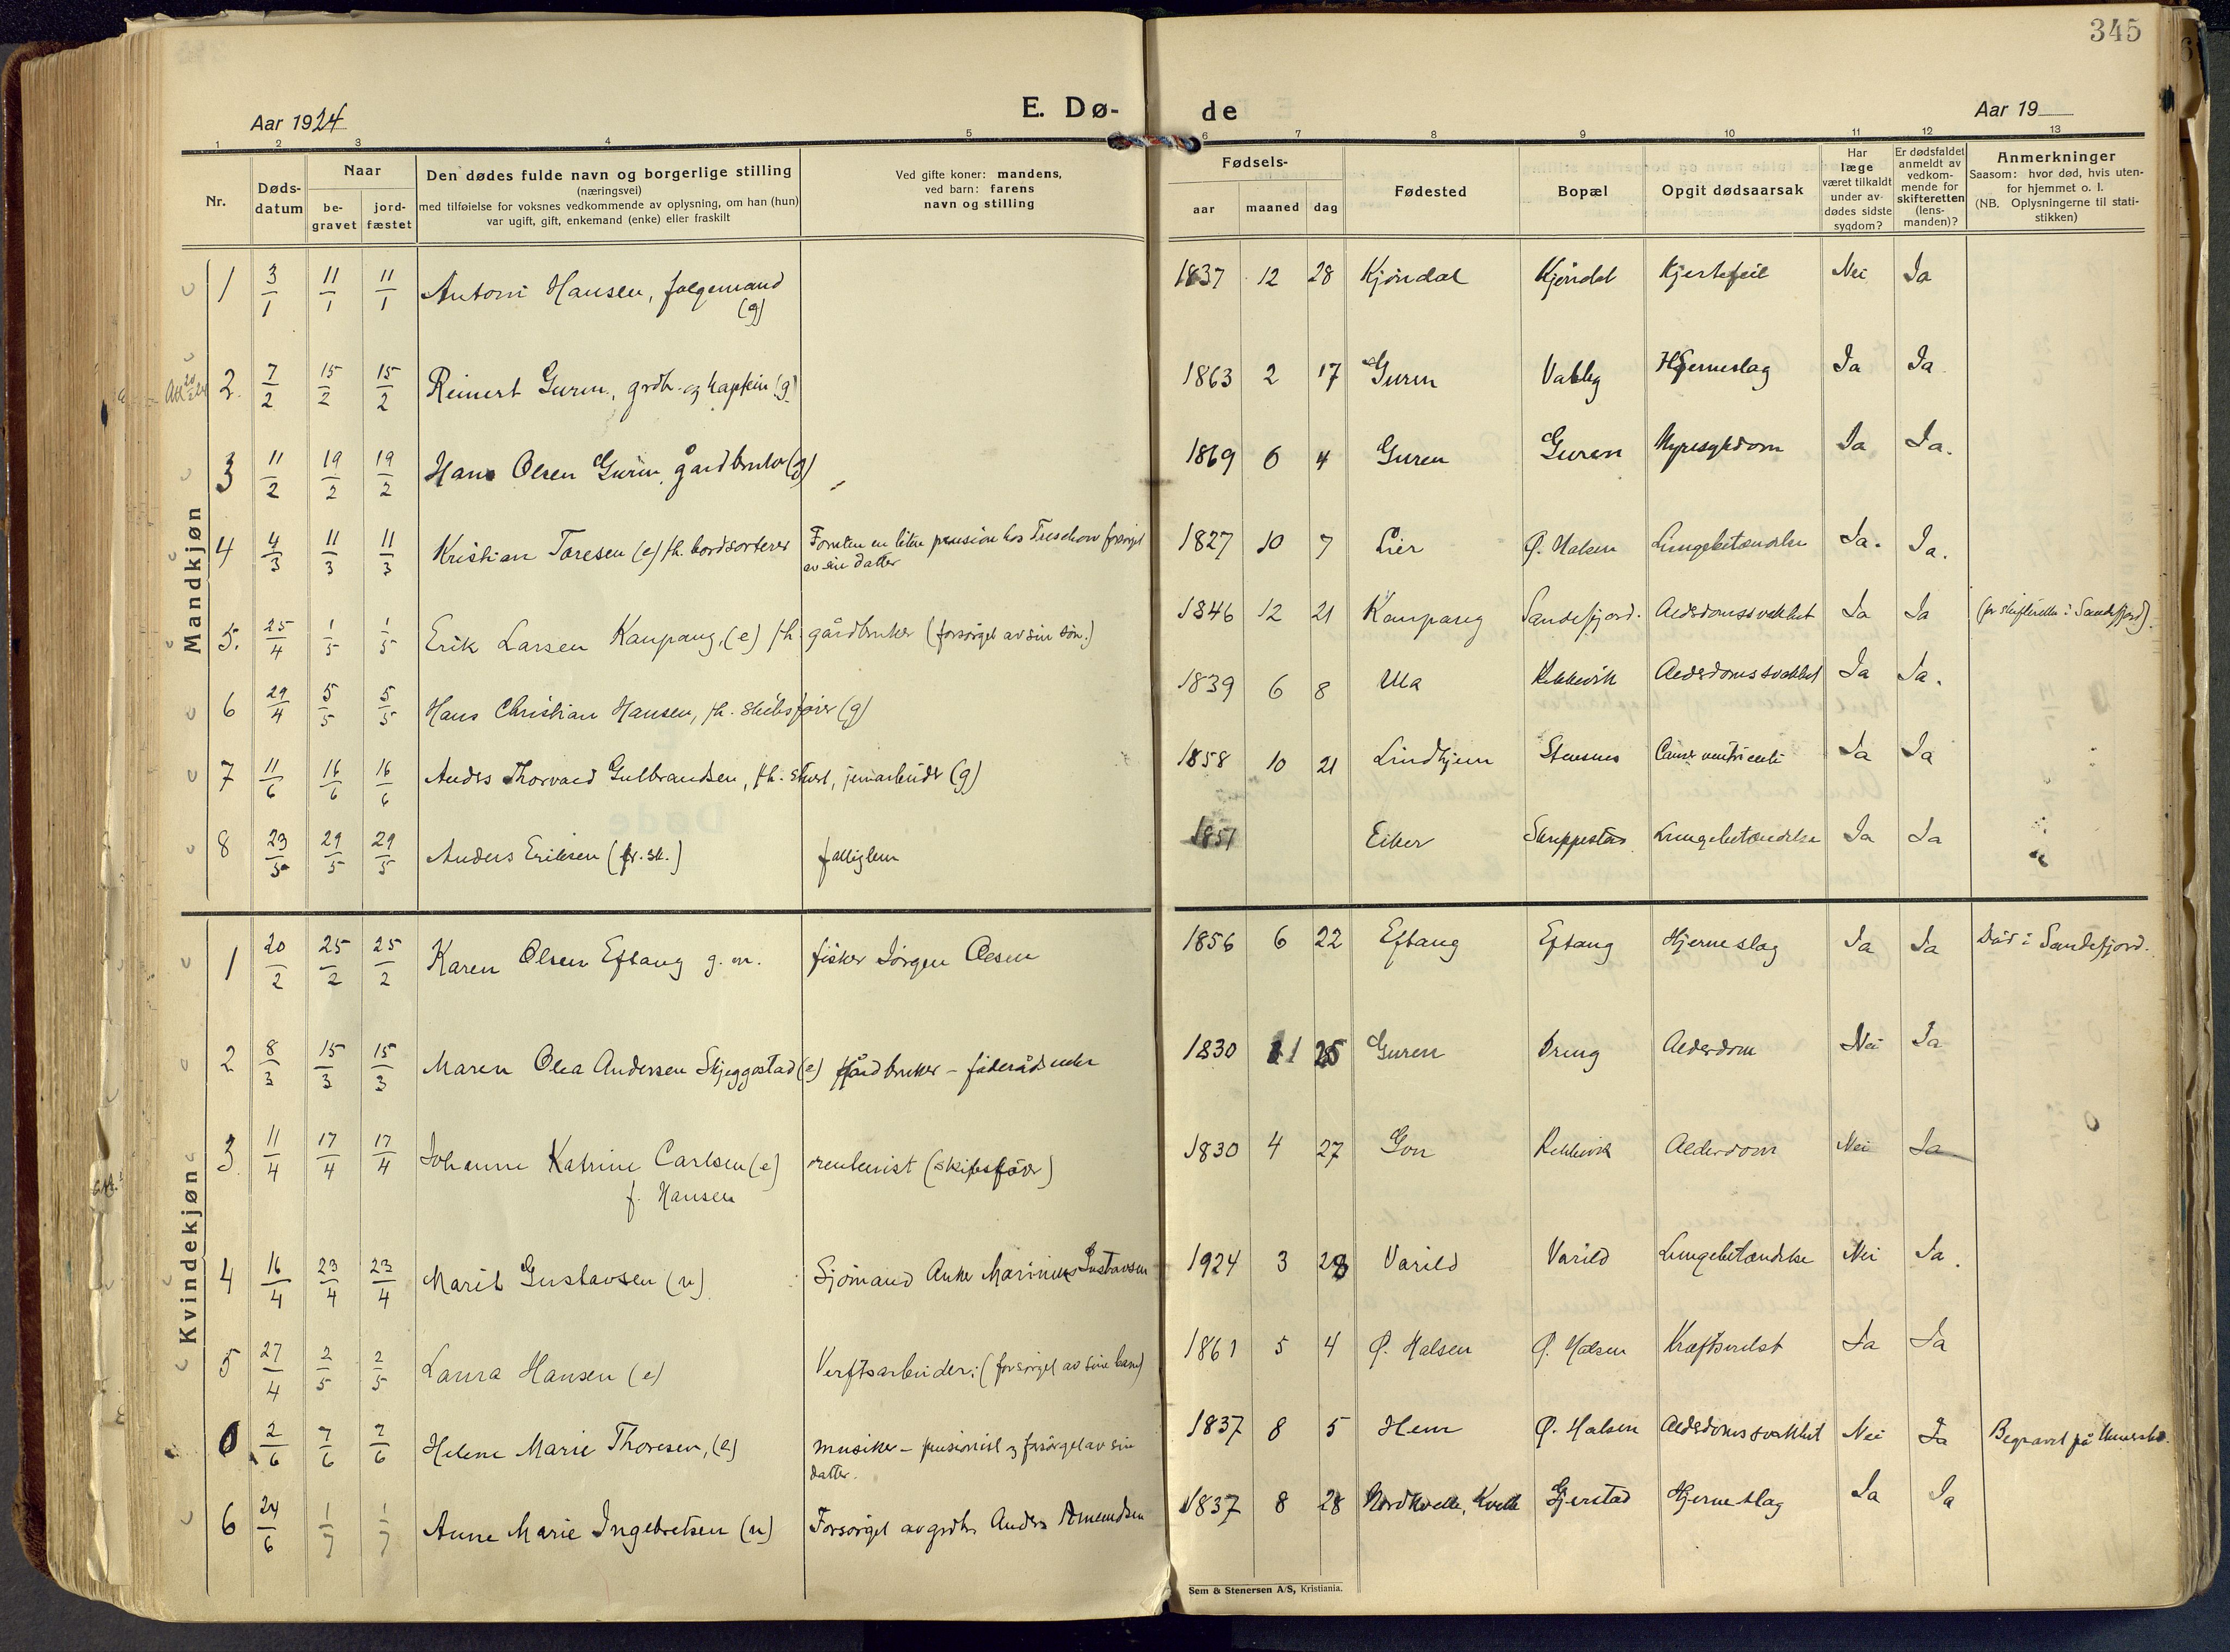 345
Aar 1924
E. Dø-
de
Aar 19
1 2 3 4 5 6 7 8 9 10 11 12 13
Nr.
Døds-
datum
Naar
be-
gravet
jord-
fæstet
Den dødes fulde navn og borgerlige stilling
(næringsvei)
med tilføielse for voksnes vedkommende av oplysning, om han (hun)
var ugift, gift, enkemand (enke) eller fraskilt
Ved gifte koner: mandens,
ved barn: farens
navn og stilling
Fødsels-
aar maaned dag
Fødested
Bopæl
Opgit dødsaarsak
Har
læge
været tilkaldt
under av-
dødes sidste
sygdom?
Er dødsfaldet
anmeldt av
vedkom-
mende for
skifteretten
(lens-
manden)?
Anmerkninger
Saasom: hvor død, hvis uten-
for hjemmet o. l.
(NB. Oplysningerne til stati-
stikken)
Mandkjøn
1 3/1 11/1 11/1 Antoni Hansen, folgemand 1837 12 28 Kjøndal Kjøndal Hjertefeil Nei Ja
(g)
2. 7/2 15/2 15/2 Reinert Guren, grdbr. og kaptein (g) 1863 2 17 Guren Valby Hjerneslag Ja Ja
3 11/2 19/2 19/2 Hans Olsen Guren, gårdbruker (g) 1869 6 4 Guren Guren Nyresykdom Ja Ja.
4 4/3 11/3 11/3 Kristian Toresen (e) fh. bordsorterer Foruten en liten pension hos Treschow forsörget 1827 10 7 Lier Ø. Halsen Lungebetændelse Ja. Ja.
av sin datter
5. 25/4 1/5 1/5 Erik Larsen Kaupang, (e) fh. gårdbruker (forsörget av sin sön.) 1846 12 21 Kaupang Sandefjord. Alderdomssvakhet Ja Ja (for skifteretten i Sandefjord).
6 29/4 5/5 5/5 Hans Christian Hansen, fh. skibsförer (g) 1839 6 8 Ula Rekkevik Alderdomssvakhet Ja Ja.
7 11/6 16/6 16/6 Anders Thorvald Gulbrandsen, fh. stuert, jernarbeider (g) 1858 10 21 Lindhjem Stensnes Cancer ventriculi Ja Ja
8 23/5 29/5 29/5 Anders Eriksen (fr. sk.) fattiglem 1851 Eiker Skreppestad Lungebetændelse Ja Ja
Kvindekjøn
1 20/2 25/2 25/2 Karen Olsen Eftang g. m. fisker Jörgen Olsen 1856 6 22 Eftang Eftang Hjerneslag Ja Ja Död i Sandefjord.
2 8/3 15/3 15/3 Maren Olea Andersen Skjeggestad (e) gårdbruker - föderådsenke 1830 11 25 Guren Bring Alderdom Nei Ja
3 11/4 17/4 17/4 Johanne Katrine Carlsen (e) rentenist (skibsförer) 1830 4 27 Gon Rekkevik Alderdom Nei Ja
f. Hansen
4 16/4 23/4 23/4 Marit Gustavsen (u) Sjömand Anker Marinius Gustavsen 1924 3 28 Varild Varild Lungebetændelse Nei Ja.
5 27/4 2/5 2/5 Laura Hansen (e) Verftsarbeider: (forsörget av sine barn) 1861 5 4 Ø. Halsen Ø. Halsen Kræftsvulst Ja Ja
0 2/6 7/6 7/6 Helene Marie Thoresen, (e) musiker - pensionist og forsörget av sin 1837 8 5 Hem Ø. Halsen Alderdomssvakhet Nei Ja Begravet på
datter.
6 24/6 1/7 1/7 Anne Marie Ingebretsen (u) Forsörget av grdbr. Anders Amundsen 1837 8 28 Nordkvelle, Kvelle Gjerstad Hjerneslag Ja Ja
Sem & Stenersen A/S, Kristiania.